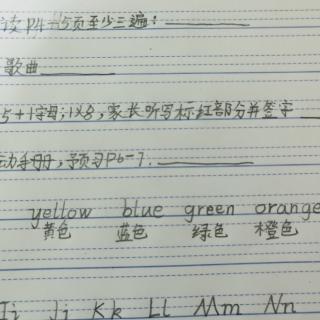 读P4-5页至少三遍:
歌曲
5+1字母;1X8,家长听写标红部分并签字
动手册,预习P6-7.
yellow blue green orange
黄色 蓝色 绿色 橙色
Ii Jj Kk Ll Mm Nn